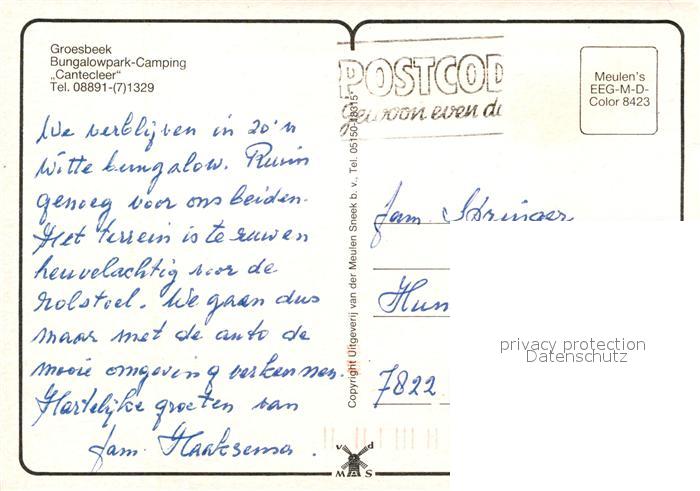 Groesbeek
Bungalowpark-Camping
„Cantecleer"
Tel. 08891-(7)1329
We verblijven in zo'n
witte bungalow. Ruim
genoeg voor ons beiden.
Het terrein is te ruw en
heuvelachtig voor de
rolstoel. We gaan dus
maar met de auto de
mooie omgeving verkennen.
Hartelijke groeten van
fam. Haaksema.
Copyright Uitgeverij van der Meulen Sneek b. v., Tel. 05150-18315
POSTCOD
gewoon even d
Meulen's
EEG-M-D-
Color 8423
fam.
Hun
7822
privacy protection
Datenschutz
v d
M A S